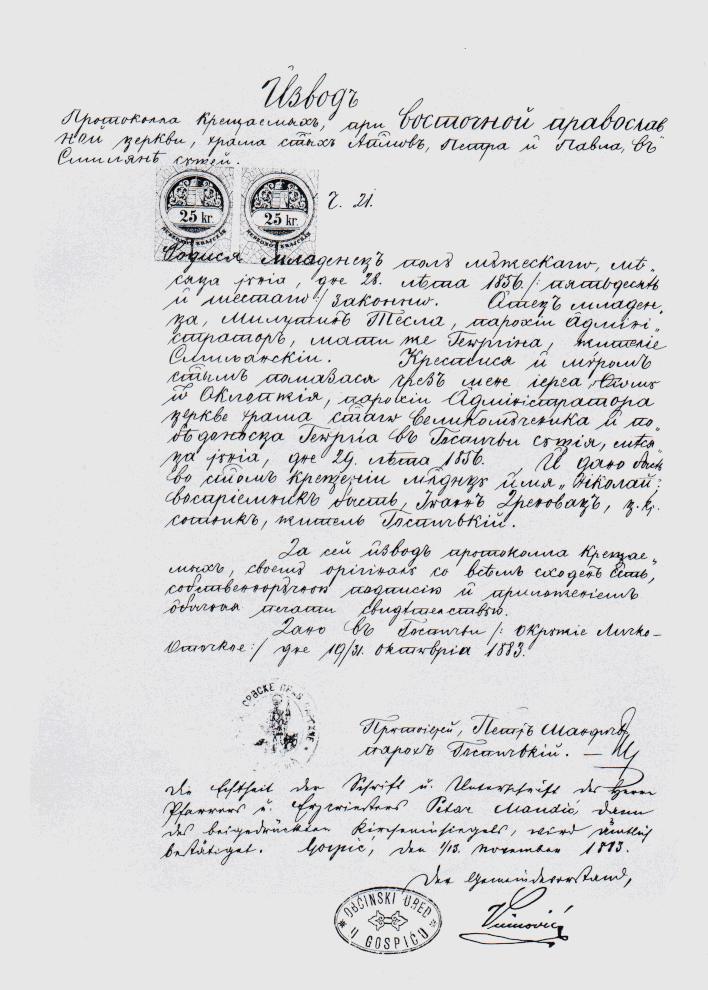 Изводъ
Протоколла крещаемыхъ, при восточной православ
ной церкви, храма стыхъ Апловъ, Петра и Павла, въ
Смилянѣ сущей.
25 kr.
25 kr.
Ч. 21.
Родися младенецъ полъ мужескагw, мѣ„
сяца јунiа, дне 28. лѣта 1856 /: пятьдесятъ
и шестагw :/ законнw. Отецъ младен„
ца, Милутинъ Тесла, парохiи Админi„
страторъ, мати же Геѡргiна, жителiе
Смилянскiи. Крестися и мѵромъ
стымъ помазася чрезъ мене iереа
и Оклопжiя, парохiи Админiстратора
церкве храма стагw Великомученика и по„
бѣдоносца Геѡргiа въ Госпичѣи сущiя, мѣся„
ца јунiа, дне 29. лѣта 1856. И дано бысть
во стомъ крещенiи млднцу имя „Нiколай:
восприемникъ бысть, Iѡаннъ Дреновацъ, ц. к.
сотникъ, житель Госпичскiй.
За сей изводъ протоколла крещае„
мыхъ, своему орiгiналу со всѣмъ сходенъ есть,
собственноручною подписiю и приложенiемъ
обычныя печати свидѣтелствую.
Дано въ Госпичѣи /: окружiе Личко-
Оточкое :/ дне 19/31. октѡврiа 1883.
СРАСКЕ ПРАВ
Протоiерей, Петръ Мандичъ
парохъ Госпичскiй.
Die Echtheit der Schrift u. Unterschrift des Herrn
Pfarrers u. Erzpriesters Petar Mandić dann
des beigedrückten Kircheninsiegels, wird ämtlich
bestätiget. Gospić, den 1/13. November 1883.
Der Gemeindevorstand,
OBĆINSKI URED
U GOSPIĆU